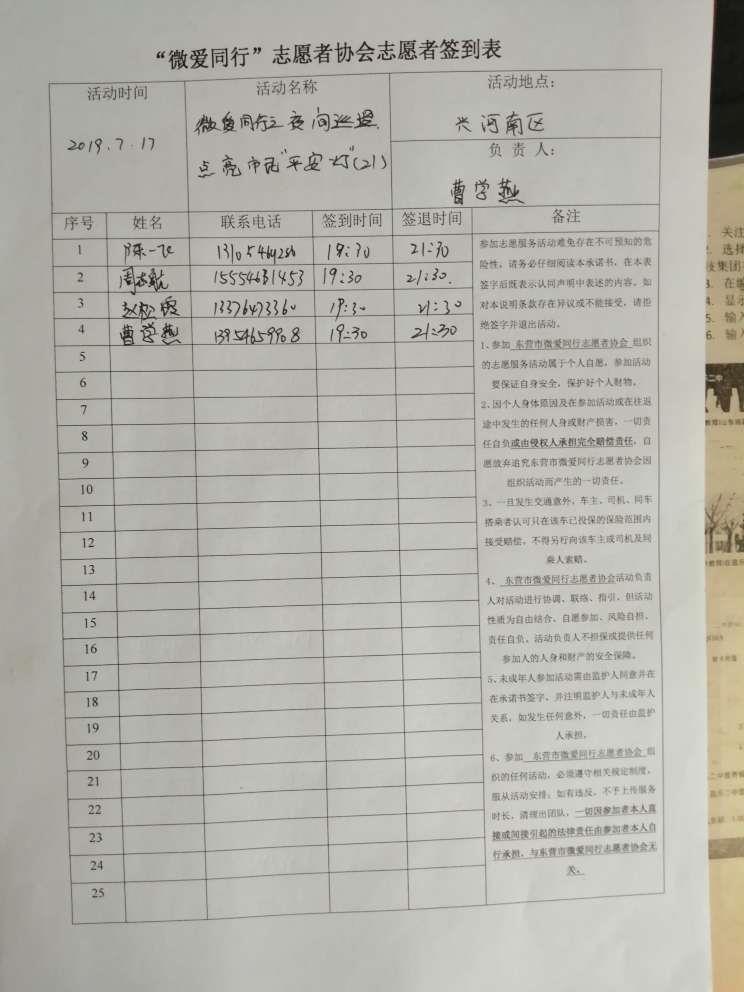 “微爱同行”志愿者协会志愿者签到表
活动时间
2019.7.17
活动名称
微爱同行之夜间巡逻
点亮市民“平安灯”(21)
活动地点：
兴河南区
负责人：
曹学燕
序号 姓名 联系电话 签到时间 签退时间 备注
1 陈一飞 19:30 21:30
2 周志航 15554631453 19:30 21:30
3 赵松霞 13376473360 19:30 21:30
4 曹学燕 13954659908 19:30 21:30
5
6
7
8
9
10
11
12
13
14
15
16
17
18
19
20
21
22
23
24
25
参加志愿服务活动难免存在不可预知的危
险性，请务必仔细阅读本承诺书，在本表
签字后既表示认同声明中表述的内容。如
对本说明条款存在异议或不能接受，请拒
绝签字并退出活动。
1、参加 东营市微爱同行志愿者协会 组织
的志愿服务活动属于个人自愿，参加活动
要保证自身安全，保护好个人财物。
2、因个人身体原因及在参加活动或在往返
途中发生的任何人身或财产损害，一切责
任自负或由侵权人承担完全赔偿责任，自
愿放弃追究东营市微爱同行志愿者协会因
组织活动而产生的一切责任。
3、一旦发生交通意外，车主、司机、同车
搭乘者认可只在该车已投保的保险范围内
接受赔偿，不得另行向该车主或司机及同
乘人索赔。
4、 东营市微爱同行志愿者协会活动负责
人对活动进行协调、联络、指引，但活动
性质为自由结合、自愿参加、风险自担、
责任自负。活动负责人不担保或提供任何
参加人的人身和财产的安全保障。
5、未成年人参加活动需由监护人同意并在
在承诺书签字，并注明监护人与未成年人
关系，如发生任何意外，一切责任由监护
人承担。
6、参加 东营市微爱同行志愿者协会 组
织的任何活动，必须遵守相关规定制度，
服从活动安排；如有违反，不予上传服务
时长，清理出团队，一切因参加者本人直
接或间接引起的法律责任由参加者本人自
行承担，与东营市微爱同行志愿者协会无
关。
关注
2. 选择
技集团
3. 在编
4. 显示
5. 输入
6. 输入